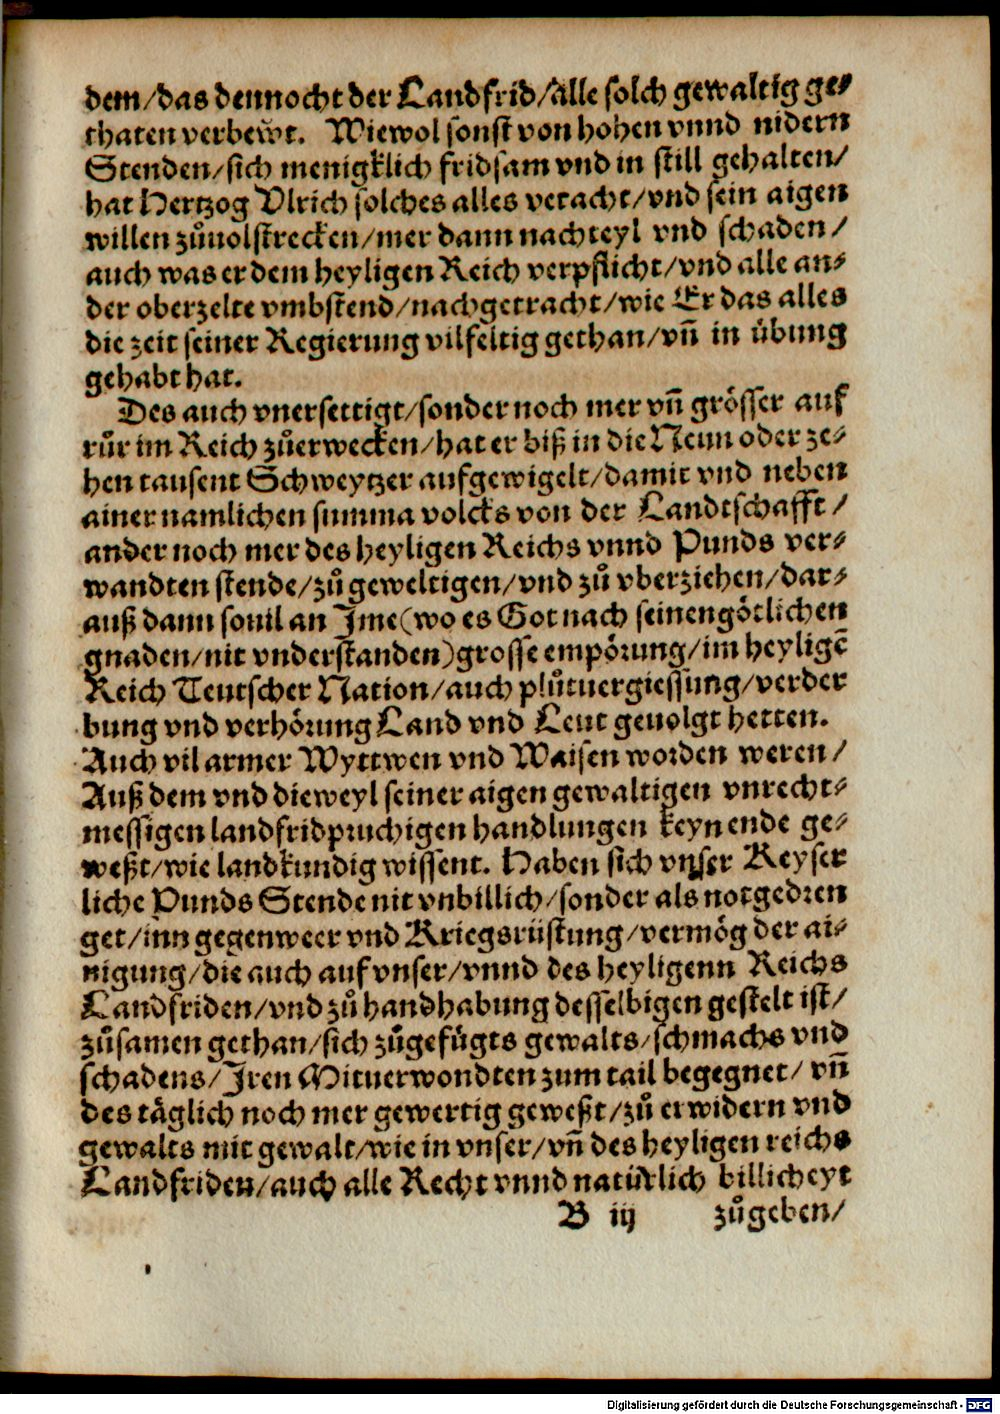 dem/das dennocht der Landfrid/alle solch gewaltig ge⸗
thaten verbeŵt. Wiewol sonst von hohen vnnd nidern
Stenden/sich menigklich fridsam vnd in still gehalten/
hat Hertzog Vlrich solches alles veracht/vnd sein aigen
willen zůuolstrecken/mer dann nachteyl vnd schaden/
auch was er dem heyligen Reich verpflicht/vnd alle an⸗
der oberzelte vmbstend/nachgetracht/wie Er das alles
die zeit seiner Regierung vilfeltig gethan/vñ in übung
gehabt hat.
Des auch vnersettigt/sonder noch mer vñ grösser auf
růr im Reich zůerwecken/hat er biß in die Neun oder ze⸗
hen tausent Schweytzer aufgewigelt/damit vnd neben
ainer namlichen summa volcks von der Landtschafft/
ander noch mer des heyligen Reichs vnnd Punds ver⸗
wandten stende/zů geweltigen/vnd zů vberziehen/dar⸗
auß dann souil an Jme(wo es Got nach seinen götlichen
gnaden/nit vnderstanden)grosse empörung/im heyligē
Reich Teutscher Nation/auch plůtuergiessung/verder
bung vnd verhörung Land vnd Leut geuolgt hetten.
Auch vil armer Wyttwen vnd Waisen worden weren/
Auß dem vnd dieweyl seiner aigen gewaltigen vnrecht⸗
messigen landfridpruchigen handlungen keyn ende ge⸗
weßt/wie landkundig wissent. Haben sich vnser Keyser
liche Punds Stende nit vnbillich/sonder als notgedren
get/inn gegenweer vnd Kriegsrüstung/vermög der ai⸗
nigung/die auch auf vnser/vnnd des heyligenn Reichs
Landfriden/vnd zů handhabung desselbigen gestelt ist/
zůsamen gethan/sich zůgefügts gewalts/schmachs vnd
schadens/Jren Mituerwondten zum tail begegnet/ vñ
des täglich noch mer gewertig geweßt/zů erwidern vnd
gewalts mit gewalt/wie in vnser/vñ des heyligen reichs
Landfriden/auch alle Recht vnnd natürlich billicheyt
B iij zůgeben/
Digitalisierung gefördert durch die Deutsche Forschungsgemeinschaft - DFG